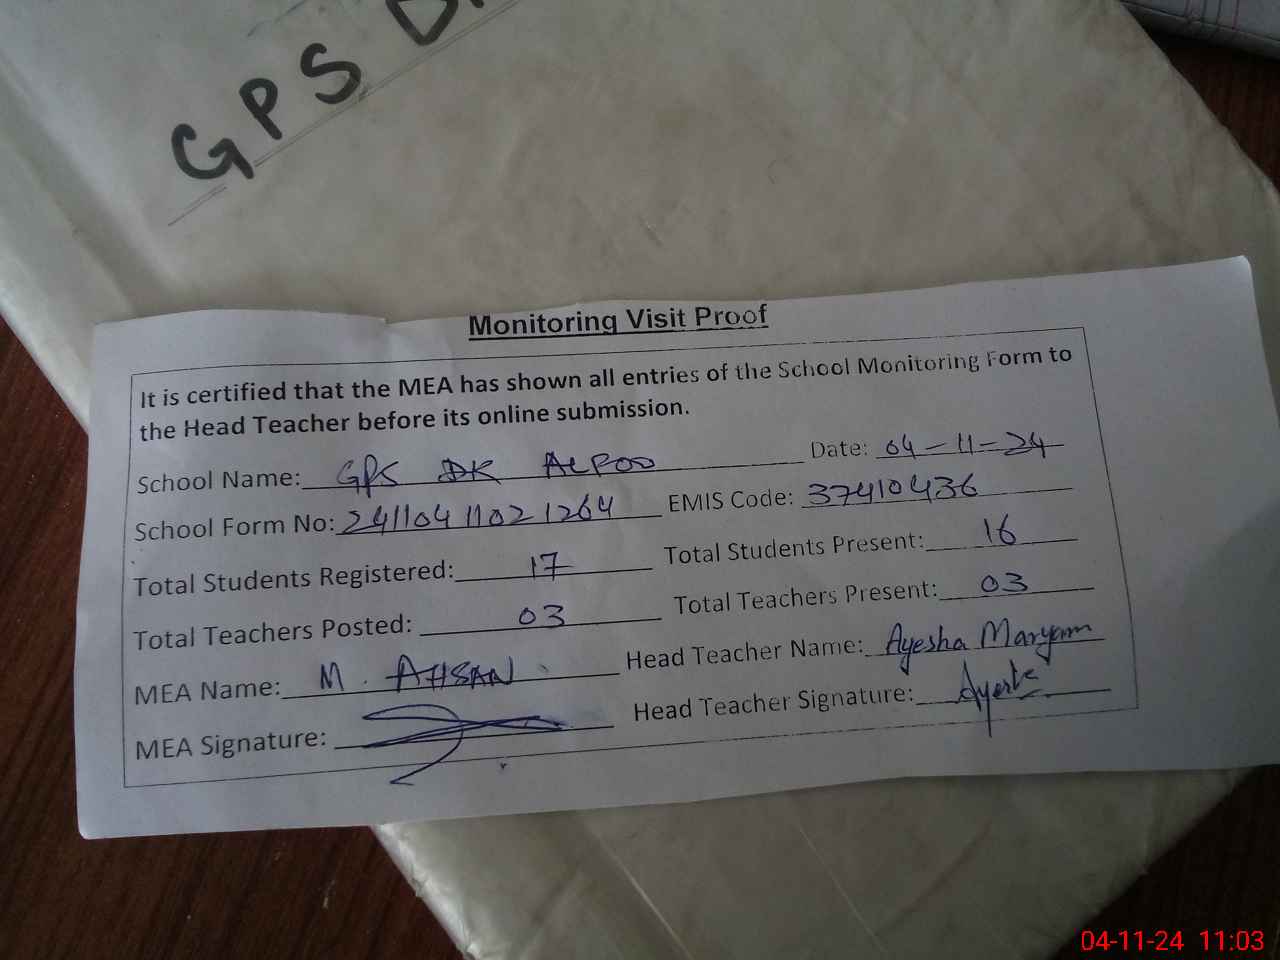 GPS D
Monitoring Visit Proof
It is certified that the MEA has shown all entries of the School Monitoring Form to
the Head Teacher before its online submission.
School Name: GPS DK Date: 04-11-24
School Form No: 24110411021264 EMIS Code: 37410436
Total Students Registered: 17 Total Students Present: 16
Total Teachers Posted: 03 Total Teachers Present: 03
MEA Name: M. AHSAN Head Teacher Name: Ayesha Maryam
MEA Signature: Head Teacher Signature:
04-11-24 11:03